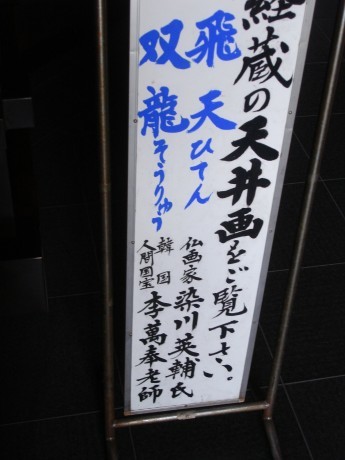 経蔵の天井画をご覧下さい。
飛天ひてん
双龍そうりゅう
仏画家 染川英輔氏
韓国人間国宝 李萬奉老師